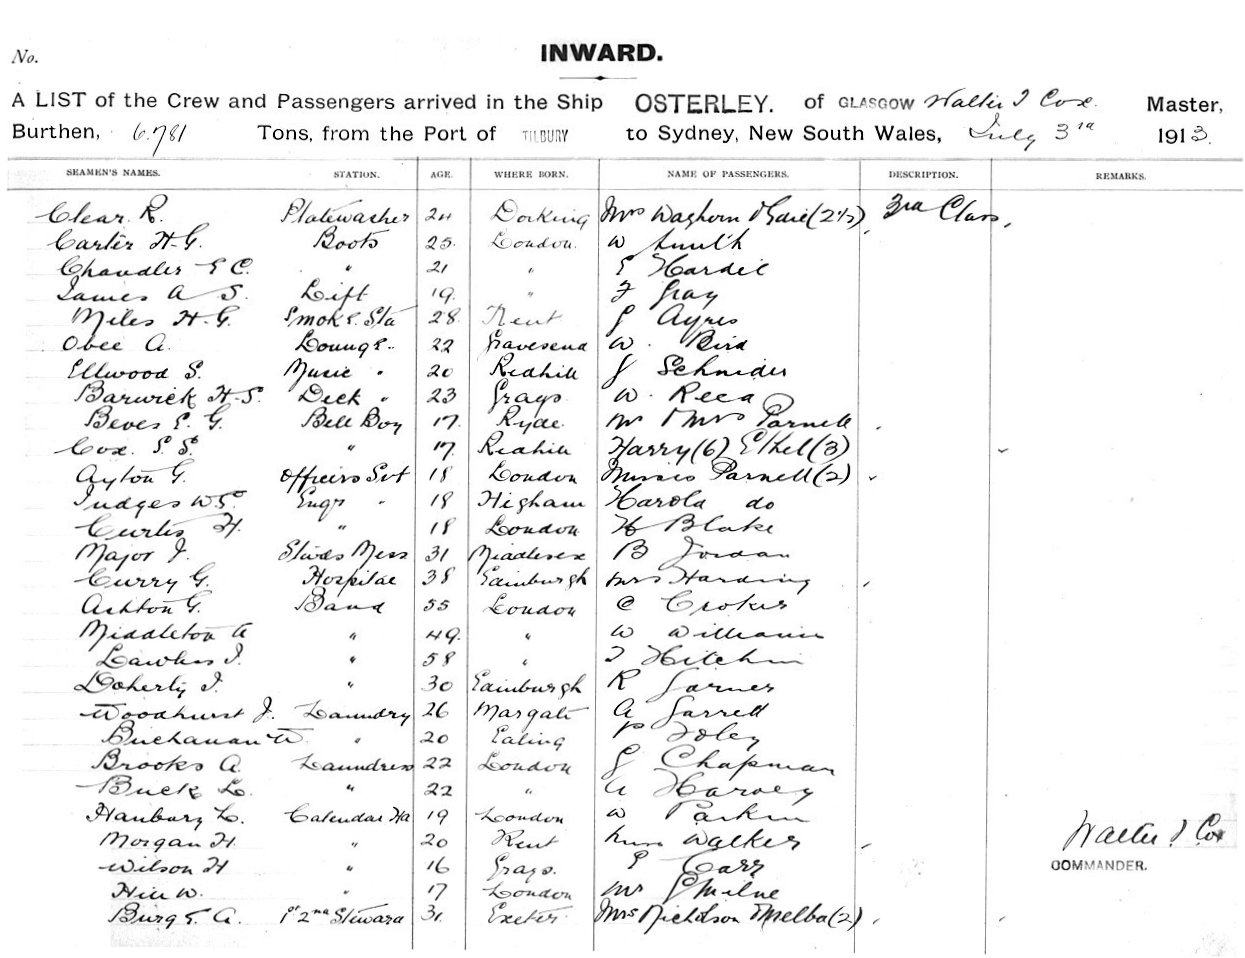 No.
INWARD.
A LIST of the Crew and Passengers arrived in the Ship OSTERLEY. of GLASGOW Walter J Cox. Master,
Burthen, 6.781 Tons, from the Port of TILBURY to Sydney, New South Wales, July 3rd 1913.
SEAMEN'S NAMES. STATION. AGE. WHERE BORN. NAME OF PASSENGERS. DESCRIPTION. REMARKS.
Clear. R. Platewasher 24 Dorking Mrs Waghorn 3rd Class,
Carter H.G. Boots 25. London. W Smith
Chandler E C. " 21 " E Hardie
James A S. Lift 19. " F Gray
Miles H.G. Smoke. Std 28. Kent G Ayres
Obee A. Lounge.. 22 Gravesend W. Bird
Ellwood S. Music " 20 Redhill J Schneider
Barwick H.S. Deck " 23 Grays. W. Reed
Beves E. G. Bell Boy 17. Ryde. Mr & Mrs Parnell
Cox. S. S. " 17. Redhill Harry (6) Ethel (3)
Ayton G. Officers Svt 18 London Misses Parnell (2)
Judges W.S. Engrs " 18 Higham Harold do
Curtis H. " 18 London H Blake
Major J. Stwds Mess 31 Middlesex B Jordan
Curry G. Hospital 38 Edinburgh Mrs Harding
Ashton G. Band 55 London C Croker
Middleton A " 49. " W Williams
Lawless J. " 58 " J Hitchin
Doherty J. " 30 Edinburgh R Garner
Woodhurst J. Laundry 26 Margate A Garrett
Buchanan W. " 20 Ealing P Foley
Brooks A. Laundress 22 London G Chapman
Buck L. " 22 " A Harvey
Hanbury L. Calendar Hd 19 London W Parkin
Morgan H. " 20 Kent Mrs Walker Walter J Cox
Wilson H " 16 Grays. E Carr COMMANDER.
Hill W. " 17 London Mr G Milne
Burg E. A. 1st 2nd Steward 31. Exeter. Mrs Nicholson & Melba (2)